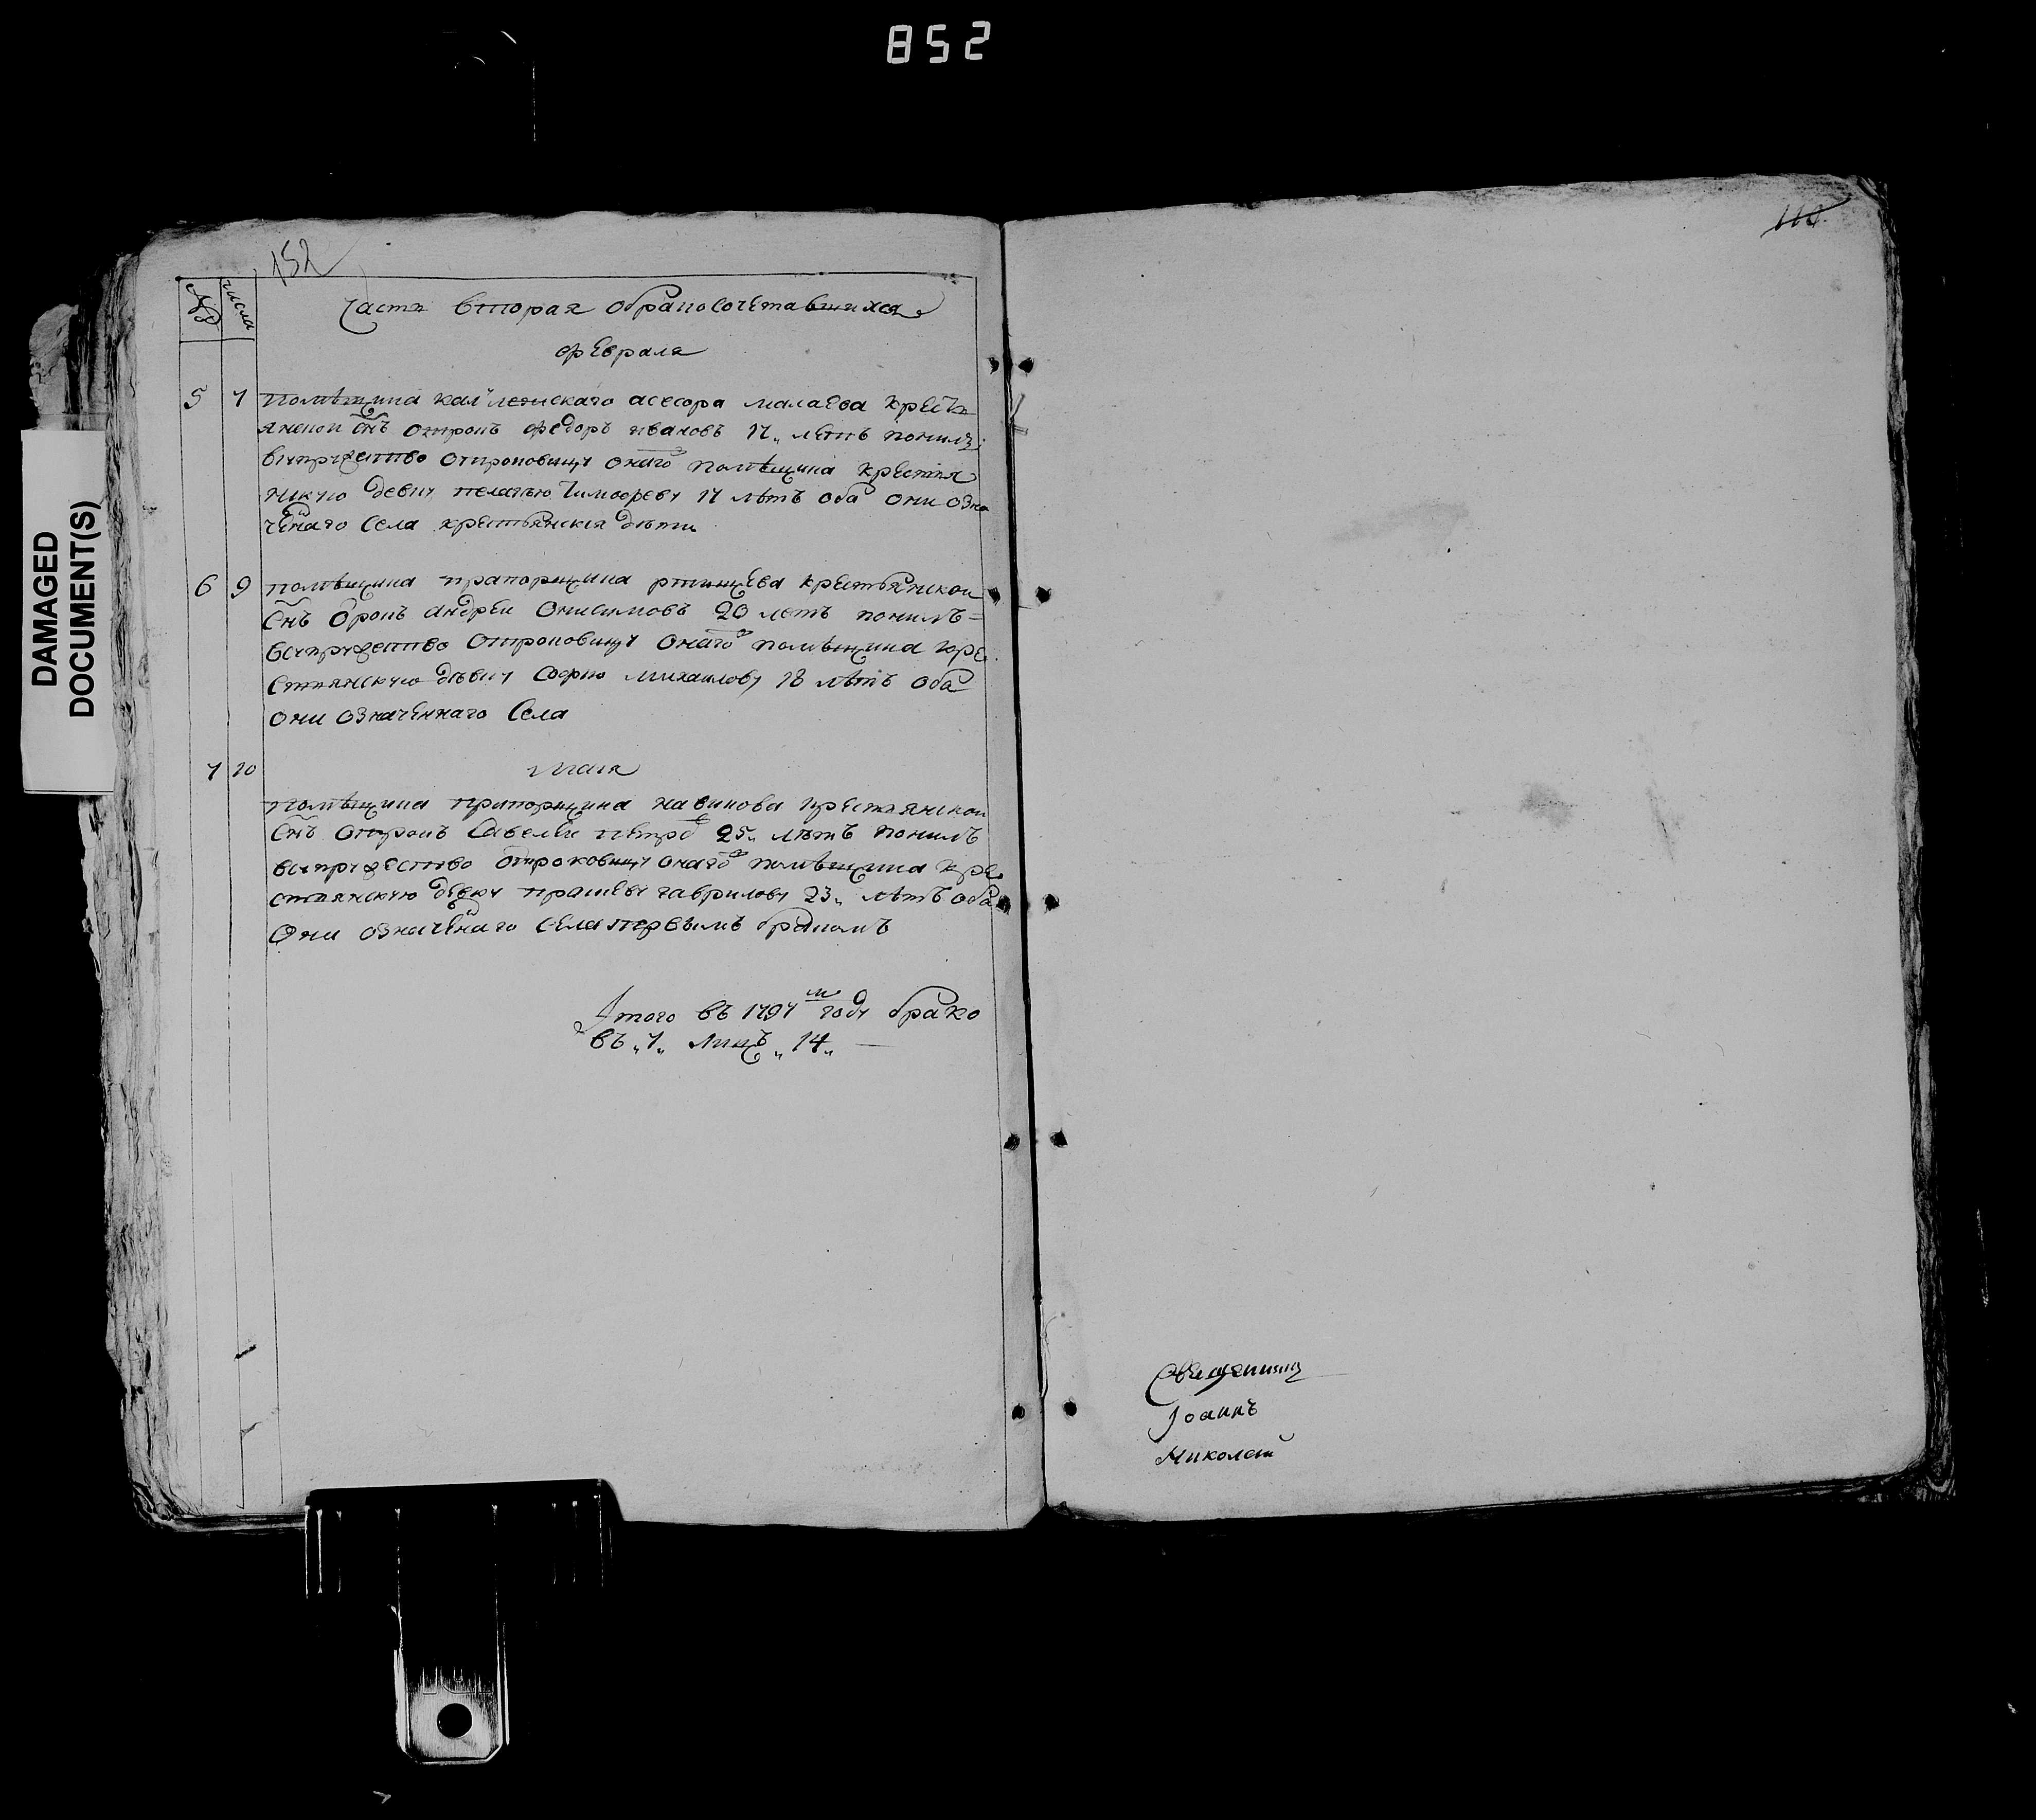 852
DAMAGED
DOCUMENT(S)
152
№ числа
Часть вторая обракосочетавшихся
февраля
5 7 помѣщика кал леженскаго асесора малаева крестъ
янской снъ отрокъ федоръ ивановъ 17 летъ понилъ
всупружество отроковицу онаго помѣщика крестья
нскую девку пелагѣю тимоѳееву 17 лѣтъ оба они озна
ченаго села крестьянския дѣти
6 9 помѣщика прапорщика ртищева крестьянской
снъ отрокъ андреи онисимовъ 20 летъ понилъ
всупружество отроковицу онаго помѣщика кре
стьянскую дѣвку софию михаилову 18 лѣтъ оба
они означеннаго села
7 10 маия
помѣщика прапорщика навикова крестьянской
снъ отрокъ савелеи петро 25 лѣтъ понилъ
всупружество отроковицу онаго помѣщика кре
стьянскую девку прасковю гаврилову 23 лѣтъ оба
они означенаго села первымъ бракомъ
Итого въ 1797 м году брако
въ 7 лицъ 14
110
Священикъ
Іоаннъ
Николаи